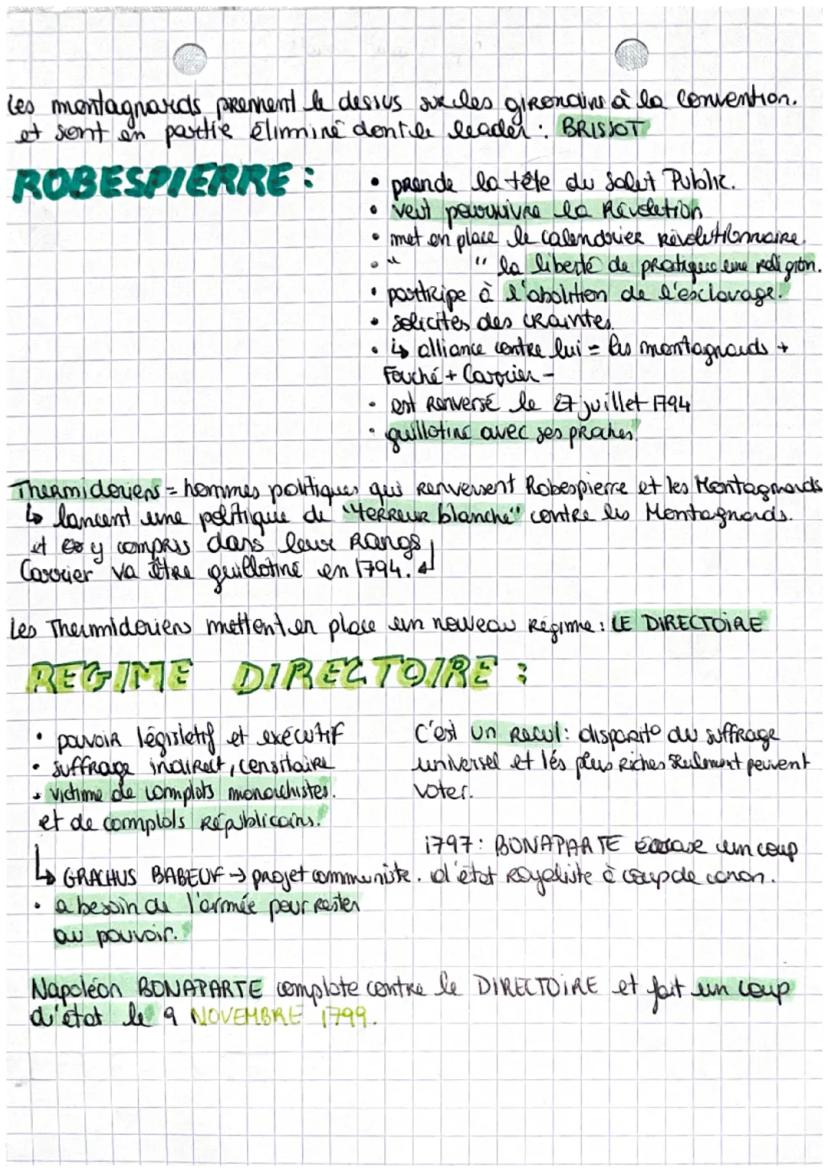 Les montagnards prennent le dessus sur les girondins à la convention.
et sont en partie éliminé dont le leader : BRISSOT
ROBESPIERRE :
• prende la tête du Salut Public.
• veut poursuivre la Révolution
• met en place le calendrier révolutionnaire.
• " " la liberté de pratiquer une religion.
• participe à l'abolition de l'esclavage.
• solicites des craintes.
• ↳ alliance contre lui = les montagnards +
Fouché + Carrier -
• est renversé le 27 juillet 1794
• guillotiné avec ses proches.
Thermidoriens = hommes politiques qui renversent Robespierre et les Montagnards
↳ lancent une politique de "terreur blanche" contre les Montagnards.
et y compris dans leur rangs
Carrier va être guillotiné en 1794.
Les Thermidoriens mettent en place un nouveau régime : LE DIRECTOIRE
REGIME DIRECTOIRE :
• pouvoir législatif et exécutif
• suffrage indirect, censitaire
• victime de complots monarchistes.
et de complots républicains.
↳ GRACHUS BABEUF → projet communiste.
• a besoin de l'armée pour rester
au pouvoir.
C'est un recul : disparit° du suffrage
universel et lés plus riches seulement peuvent
voter.
1797 : BONAPARTE écrase un coup
d'état royaliste à coup de canon.
Napoléon BONAPARTE complote contre le DIRECTOIRE et fait un coup
d'état le 9 NOVEMBRE 1799.